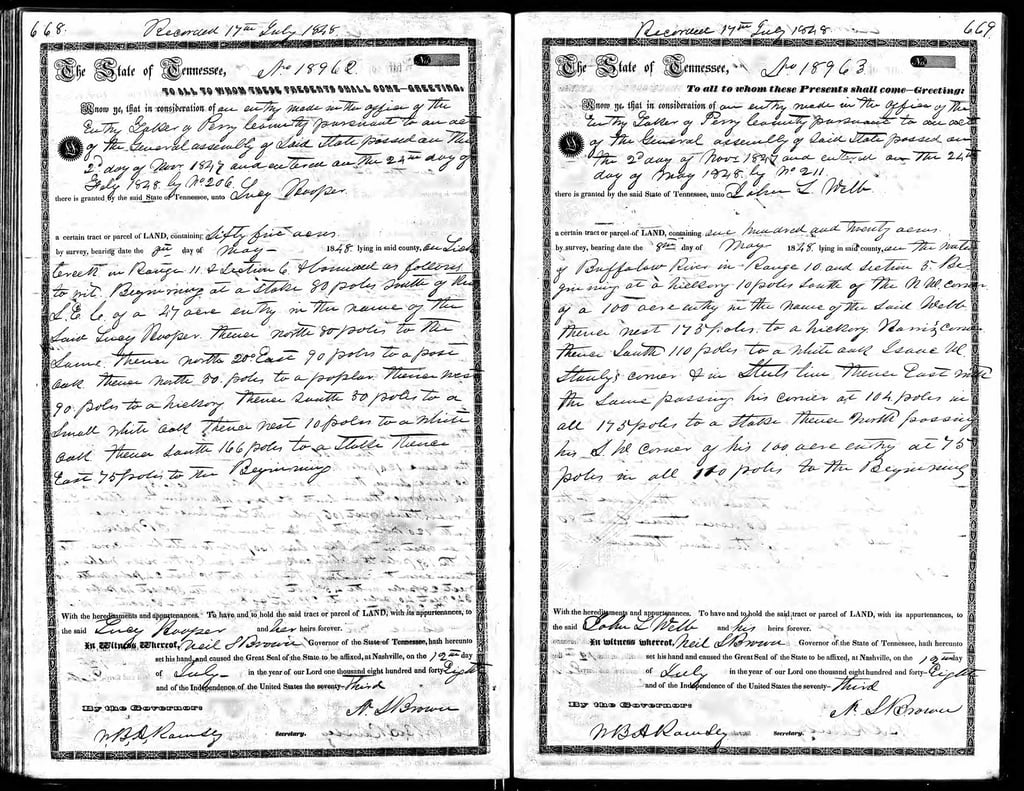 668
Recorded 17th July 1848
The State of Tennessee, No 18962
TO ALL TO WHOM THESE PRESENTS SHALL COME—GREETING:
Know ye, that in consideration of an entry made in the office of the
Entry Taker of Perry County pursuant to an act
of the General assembly of Said State passed on the
2d day of Nov 1847 and entered on the 24th day of
Feby 1848 by No 206
there is granted by the said State of Tennessee, unto Lucy Hooper
a certain tract or parcel of LAND, containing Sixty five acres
by survey, bearing date the day of May 1848 lying in said county, on Lick
Creek in Range 11 & Section 6 & bounded as follows
to wit. Beginning at a Stake 80 poles South of the
S. E. C. of a 27 acre entry in the name of the
Said Lucy Hooper thence north 80 poles to the
Same thence north 20° East 90 poles to a post
oak thence north 30 poles to a poplar thence west
90 poles to a hickory thence South 50 poles to a
Small white oak thence west 10 poles to a white
oak thence South 166 poles to a Stake thence
East 75 poles to the Beginning
With the hereditaments and appurtenances. To have and to hold the said tract or parcel of LAND, with its appurtenances, to
the said Lucy Hooper and her heirs forever.
In Witness Whereof, Neil S Brown Governor of the State of Tennessee, hath hereunto
set his hand, and caused the Great Seal of the State to be affixed, at Nashville, on the 12th day
of July in the year of our Lord one thousand eight hundred and forty-Eight
and of the Independence of the United States the seventy-third
By the Governor: N. S Brown
W. B. A. Ramsey Secretary.
669
Recorded 17th July 1848
The State of Tennessee, No 18963
To all to whom these Presents shall come—Greeting:
Know ye, that in consideration of an entry made in the office of the
Entry Taker of Perry County pursuant to an act
of the General assembly of Said State passed on
the 2d day of Nov 1847 and entered on the 24th
day of May 1848 by No 211
there is granted by the said State of Tennessee, unto John L Webb
a certain tract or parcel of LAND, containing one Hundred and twenty acres
by survey, bearing date the 8th day of May 1848 lying in said county, on the waters
of Buffalow River in Range 10 and Section 5. Be
ginning at a hickory 10 poles South of the N W corner
of a 100 acre entry in the name of the Said Webb
thence west 175 poles to a hickory corner
thence South 110 poles to a white oak Isaac W
corner & in line, thence East with
the Same passing his corner at 104 poles in
all 175 poles to a Stake thence North passing
his S. W corner of his 100 acre entry at 75
poles in all 110 poles to the Beginning
With the hereditaments and appurtenances. To have and to hold the said tract or parcel of LAND, with its appurtenances, to
the said John L Webb and his heirs forever.
In witness whereof, Neil S Brown, Governor of the State of Tennessee, hath hereunto
set his hand, and caused the Great Seal of the State to be affixed, at Nashville, on the 12th day
of July in the year of our Lord one thousand eight hundred and forty-Eight
and of the Independence of the United States the seventy-third
By the Governor: N. S Brown
W B A Ramsey Secretary.